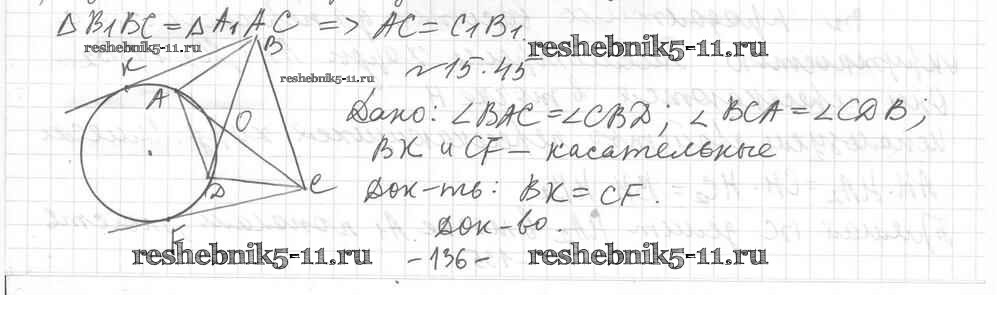 Δ B₁BC = Δ A₁AC => AC = C₁B₁.
reshebnik5-11.ru
reshebnik5-11.ru
B
№ 15.45
K
reshebnik5-11.ru
A
Дано: ∠BAC = ∠CBD; ∠BCA = ∠CDB;
O
BK и CF – касательные
D
C
Док-ть: BK = CF.
F
Док-во.
reshebnik5-11.ru
-136-
reshebnik5-11.ru